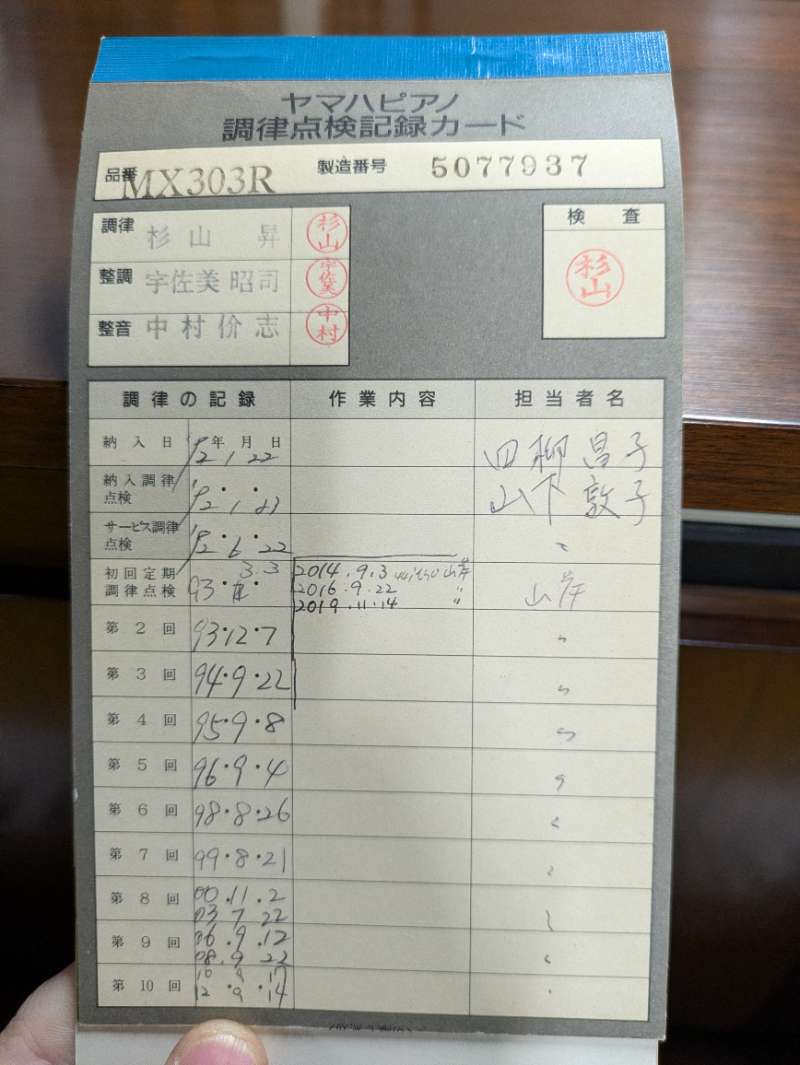 ヤマハピアノ
調律点検記録カード
品番 MX303R 製造番号 5077937
調律 杉山 昇 杉山
整調 宇佐美昭司 宇佐美
整音 中村价志 中村
検査
杉山
調律の記録 作業内容 担当者名
納入日 年 月 日 '92 1 22 四柳 昌子
納入調律点検 '92・1・23 山下 敦子
サービス調律点検 '92・6・22 〃
初回定期調律点検 93・3.3 山岸
2014.9.3 山岸
2016.9.22 〃
2019.11.14 〃
第2回 93・12・7 〃
第3回 94・9・22 〃
第4回 95・9・8 〃
第5回 96・9・4 〃
第6回 98・8・26 〃
第7回 99・8・21 〃
第8回 00.11.2 〃
03 7 22
第9回 06.9.12 〃
08.9 22
第10回 10 9 17 〃
12・9・14